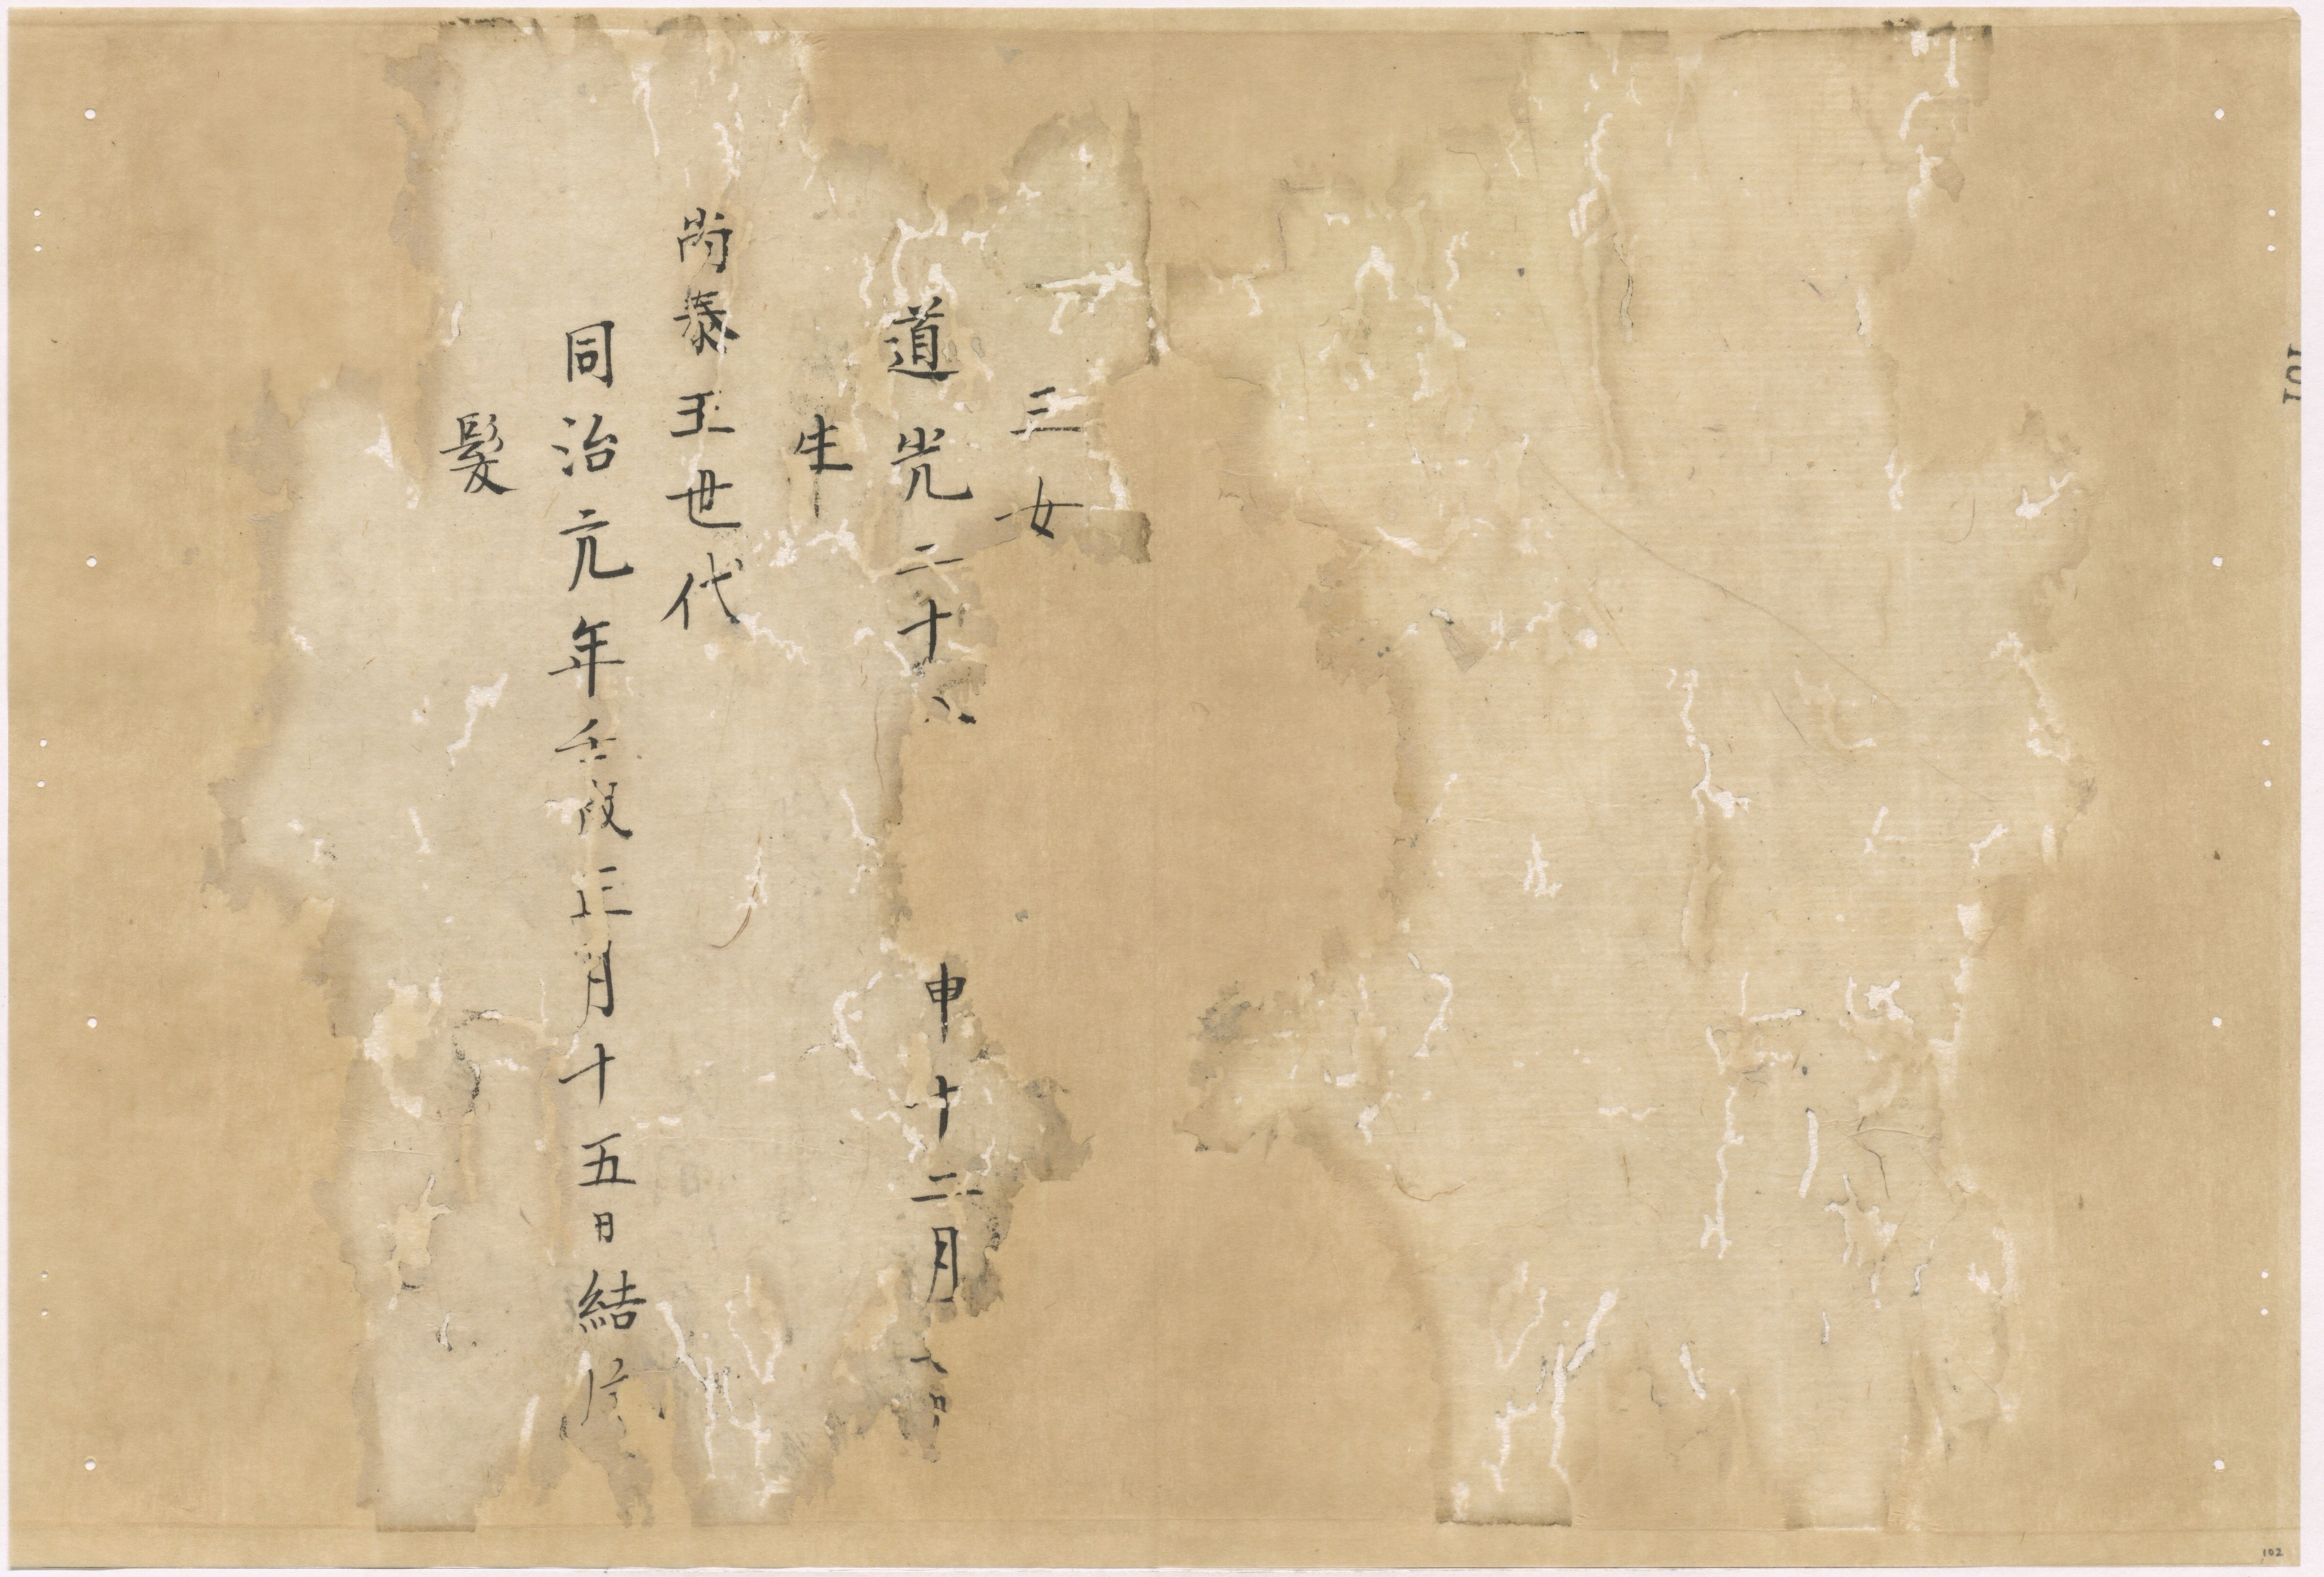 三女
道光二十八
申十二月
生
尚泰王世代
同治元年壬戌正月十五日結
髪
102